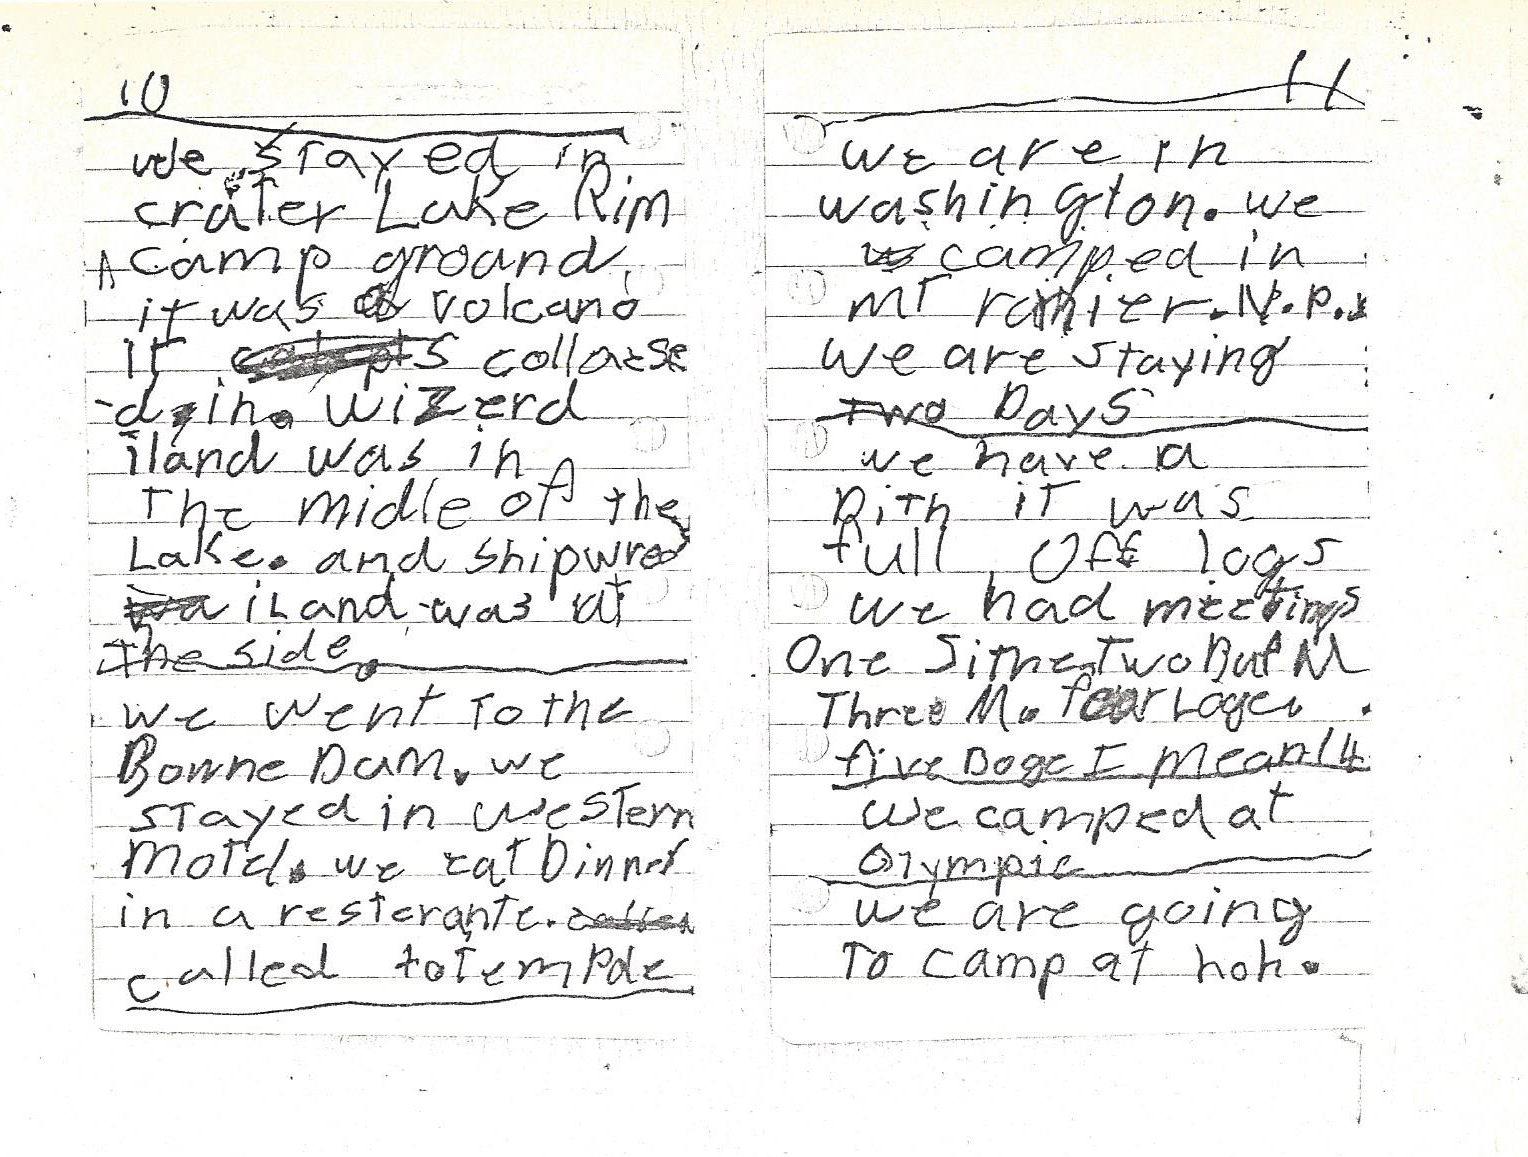 10
we stayed in
crater Lake Rim
A camp ground
it was a volcano
It collaese
-d in. wizerd
iland was in
The midle of the
Lake. and shipwreo
iland was at
the side.
we went To the
Bonne Dam. we
stayed in western
Motel. we eat Dinner
in a resterante.
called totempole
11
we are in
washington. we
camped in
mT ranier. N.P.
we are staying
two Days
we have a
Dith it was
full Off logs
we had meetings
One Sithe Two But M
Three M. fear Loge.
five Doge I mean 14
we camped at
Olympic
we are going
To camp at hoh.